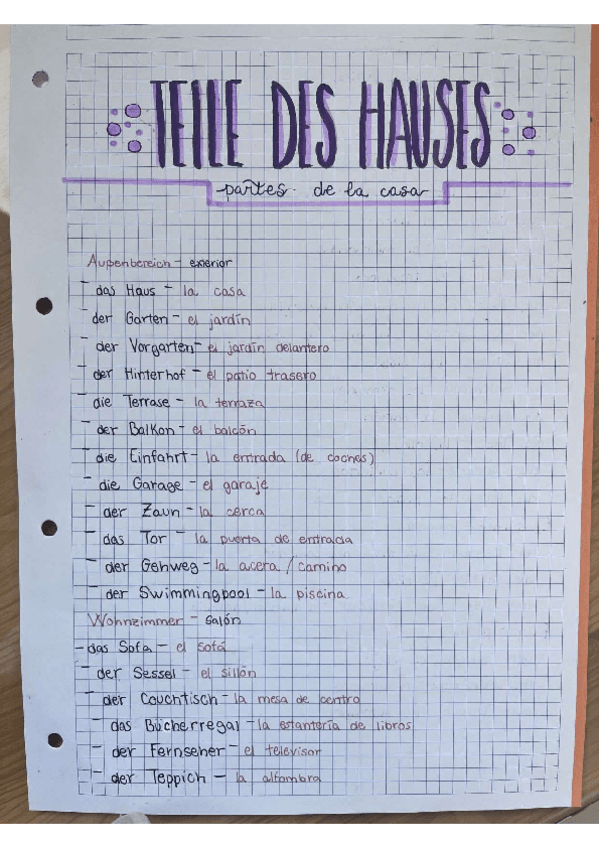 TEILE DES HAUSES
partes de la casa
Außenbereich - exterior
- das Haus - la casa
- der Garten - el jardín
- der Vorgarten - el jardín delantero
- der Hinterhof - el patio trasero
- die Terrase - la terraza
- der Balkon - el balcón
- die Einfahrt - la entrada (de coches)
- die Garage - el garaje
- der Zaun - la cerca
- das Tor - la puerta de entrada
- der Gehweg - la acera / camino
- der Swimmingpool - la piscina
Wohnzimmer - salón
- das Sofa - el sofá
- der Sessel - el sillón
- der Couchtisch - la mesa de centro
- das Bücherregal - la estantería de libros
- der Fernseher - el televisor
- der Teppich - la alfombra